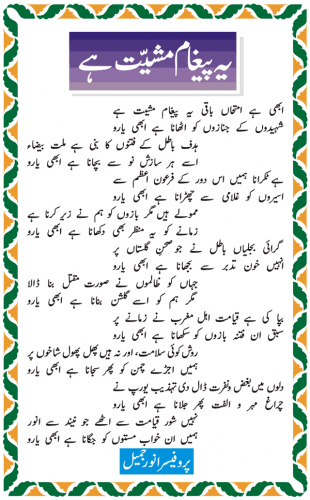 یہ پیغام مشیّت ہے
ابھی ہے امتحاں باقی یہ پیغام مشیت ہے
شہیدوں کے جنازوں کو اٹھانا ہے ابھی یارو
ہدف باطل کے فتنوں کا بنی ہے ملت بیضاء
اسے ہر سازش نو سے بچانا ہے ابھی یارو
ہے ٹکرانا ہمیں اس دور کے فرعون اعظم سے
اسیروں کو غلامی سے چھڑانا ہے ابھی یارو
ممولے ہیں مگر بازوں کو ہم نے زیر کرنا ہے
زمانے کو یہ منظر بھی دکھانا ہے ابھی یارو
گرائی بجلیاں باطل نے جو صحنِ گلستاں پر
انہیں خون تدبر سے بجھانا ہے ابھی یارو
جہاں کو ظالموں نے صورت مقتل بنا ڈالا
مگر ہم کو اسے گلشن بنانا ہے ابھی یارو
بپا کی ہے قیامت اہل مغرب نے زمانے پر
سبق ان فتنہ بازوں کو سکھانا ہے ابھی یارو
روش کوئی سلامت، اور نہ ہیں پھل پھول شاخوں پر
ہمیں اجڑے چمن کو پھر سجانا ہے ابھی یارو
دلوں میں بغض ونفرت ڈال دی تہذیب یورپ نے
چراغ مہر و الفت پھر جلانا ہے ابھی یارو
نہیں شور قیامت سے اٹھے جو نیند سے انور
ہمیں ان خواب مستوں کو جگانا ہے ابھی یارو
پروفیسر انور جمیل